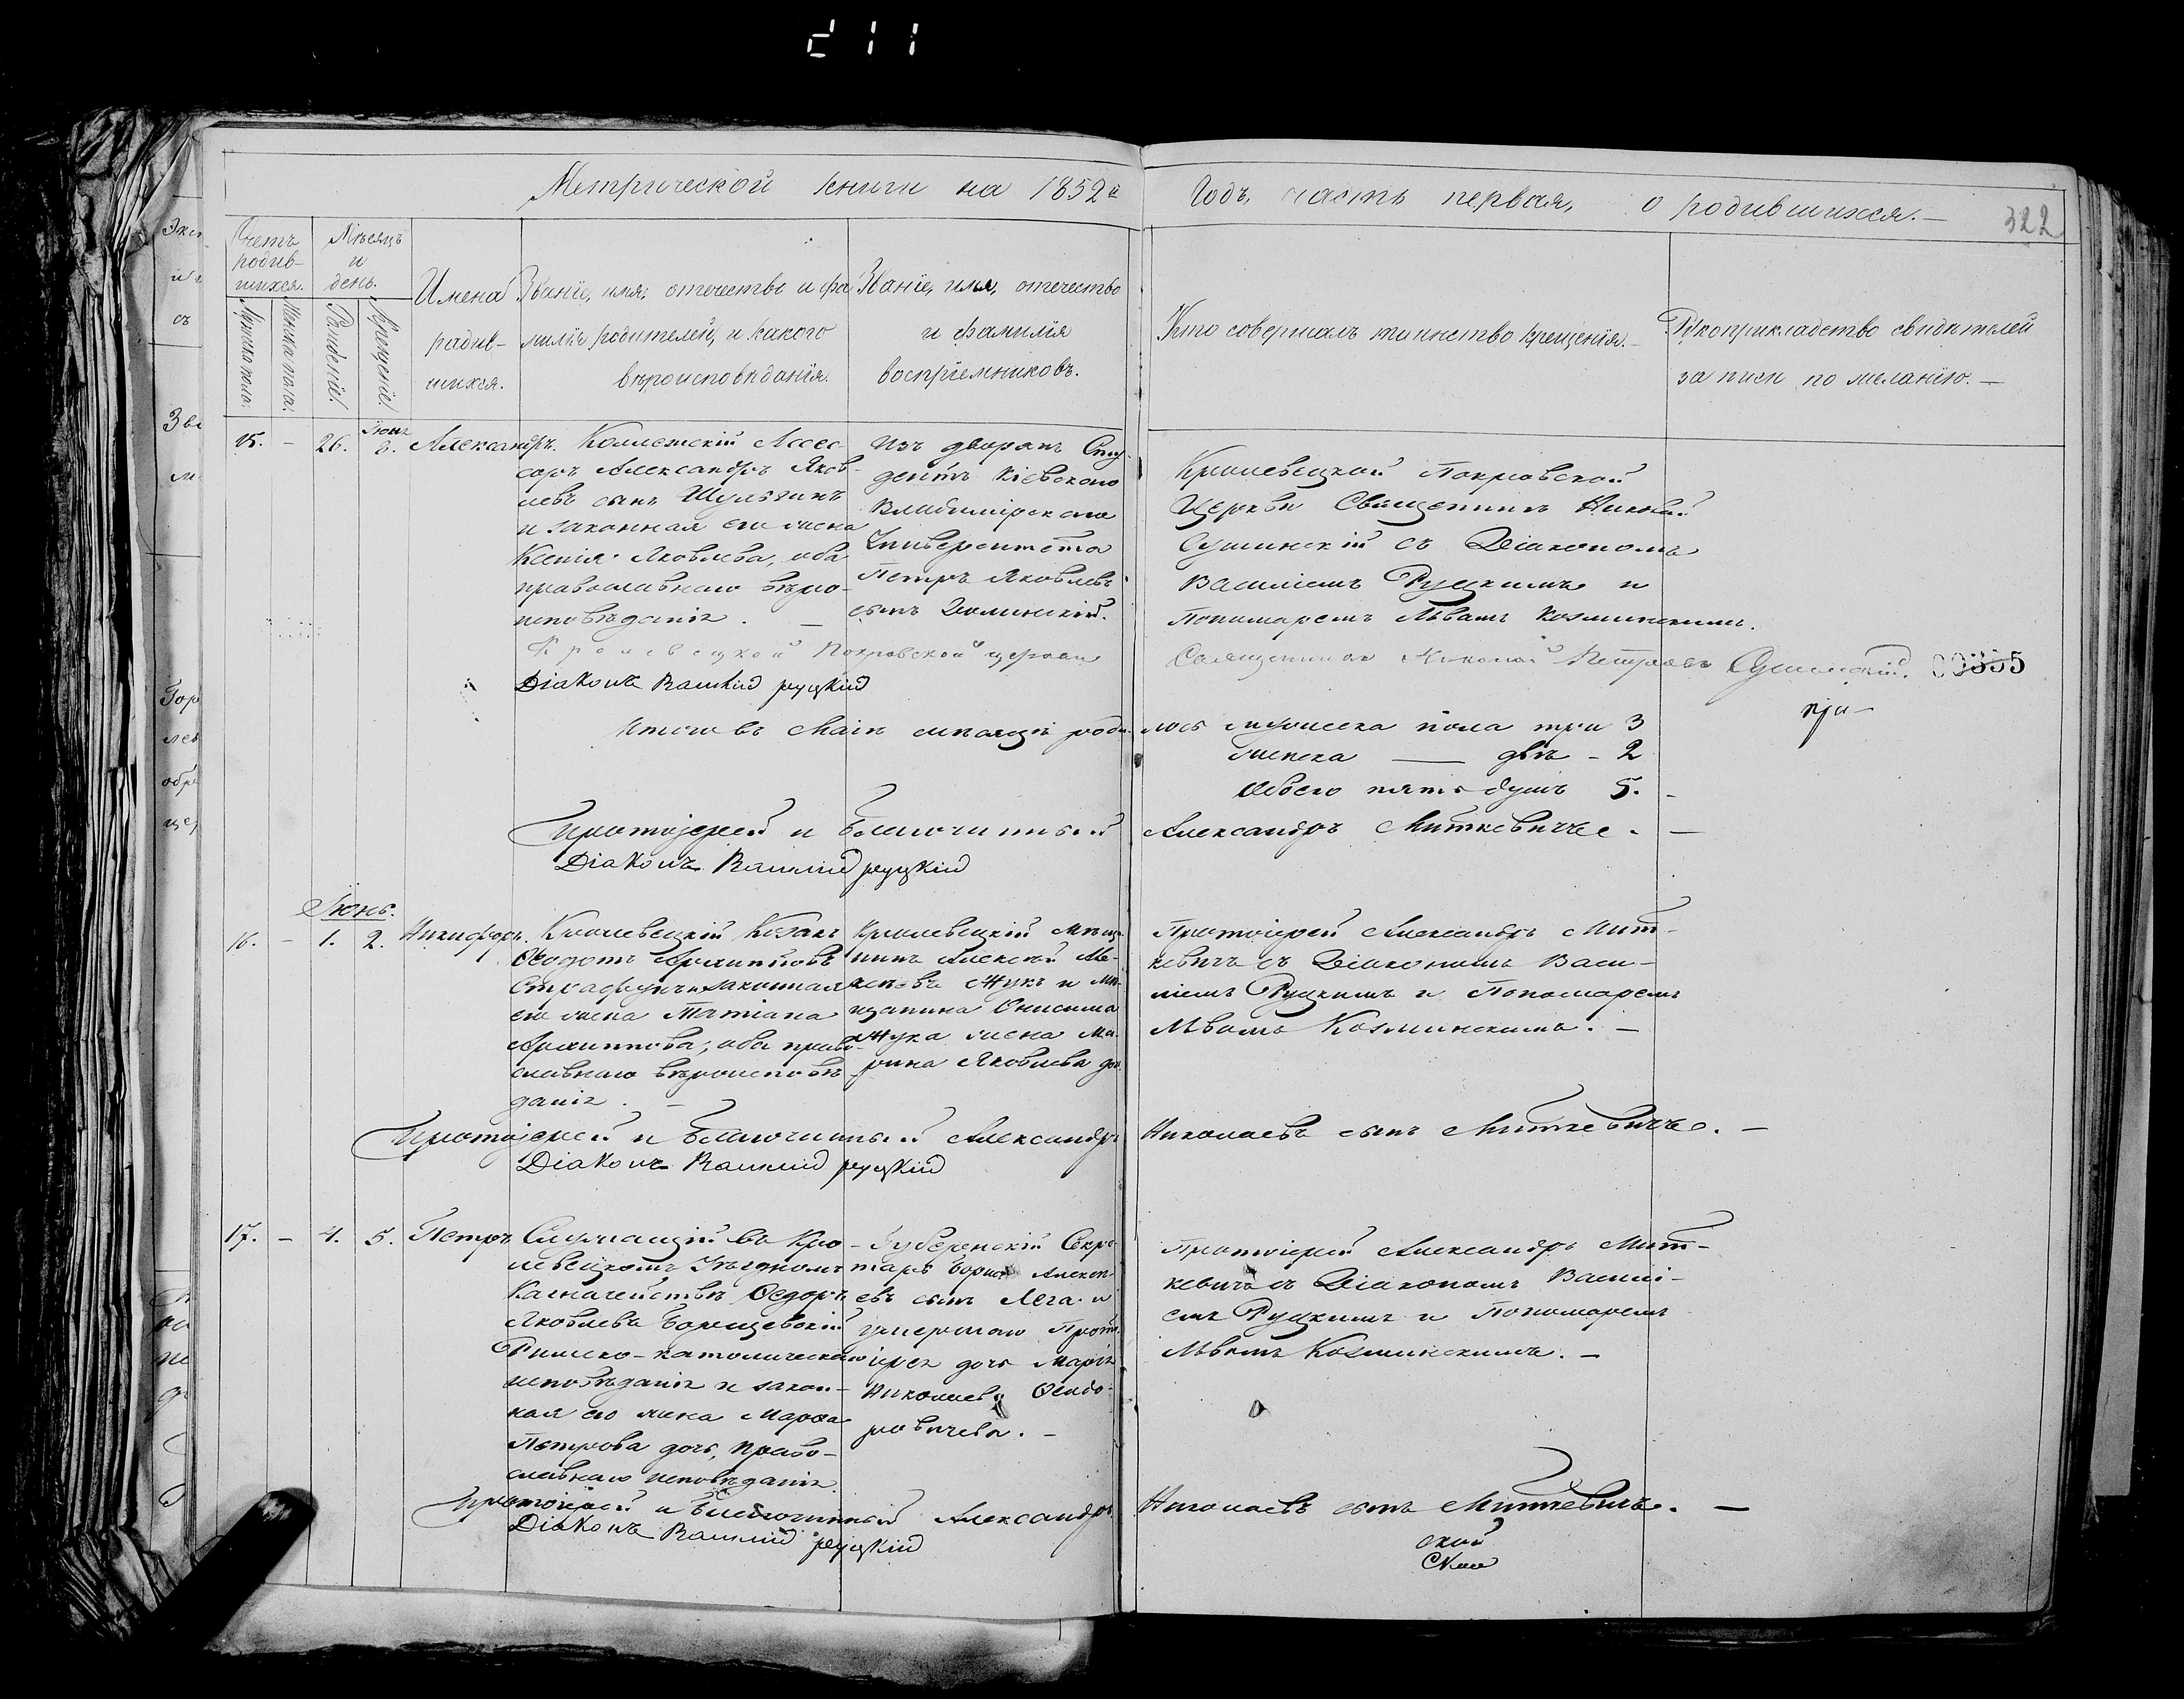 211
Метрической книги на 1852й Годъ, часть первая, о родившихся.
322
Счетъ родив-шихся.
Мѣсяцъ и день.
Мужеска пола.
Женска пола.
Рожденіе.
Крещеніе.
Имена родив-шихся.
Званіе, имя, отечество и фа-
миліи родителей, и какого
вѣроисповѣданія.
Званіе, имя, отечество
и фамилія
воспріемниковъ.
Кто совершалъ таинство крещенія.
Рукоприкладство свидѣтелей
записи по желанію.
15. - 26. Іюня 8. Александръ.
Коллежскій Ассес-
соръ Александръ Яков-
левъ сынъ Шульгинъ
и законная его жена
Ксенія Яковлева, оба
православнаго вѣро-
исповѣданія.
Изъ дворянъ Сту-
дентъ Кіевскаго
Владимірскаго
Университета
Петръ Яковлевъ
сынъ Долинскій.
Кролевецкой Покровской
Церкви Священникъ Николай
Сушинскій съ Діакономъ
Василіемъ Руцкимъ и
Пономаремъ Львомъ Козминскимъ.
Кролевецкой Покровской церкви Священникъ Николай Петровъ Сушинскій.
00355
Діаконъ Василій Руцкій
при-
Итого въ Маіѣ мѣсяцѣ роди-лось мужеска пола три 3
женска двѣ - 2
Обоего пять душъ 5.
Протоіерей и Благочинный Александръ Миткевичъ.
Діаконъ Василій Руцкій
Іюнь.
16. - 1. 2. Никифоръ.
Кролевецкій Козакъ
Ѳеодотъ Архиповъ
законная
его жена Татіана
Архиппова, оба право-
славнаго вѣроисповѣ-
данія.
Кролевецкій Мѣща-
нинъ Алексѣй Але-
ксѣевъ Жукъ и Мѣ-
щанина Онисима
Жука жена Ма-
рина Яковлева доч.
Протоіерей Александръ Мит-
кевичъ съ Діакономъ Васи-
ліемъ Руцкимъ и Пономаремъ
Львомъ Козминскимъ.
Протоіерей и Благочинный Александръ Николаевъ сынъ Миткевичъ.
Діаконъ Василій Руцкій
17. - 4. 5. Петръ
Служащій въ Кро-
левецкомъ Уѣздномъ
Казначействѣ Ѳедоръ
Яковлевъ Борщевскій
Римско-католическаго
исповѣданія и закон-
ная его жена Марѳа
Петрова дочь, право-
славнаго исповѣданія.
Губернскій Секре-
тарь Борисъ Алексѣ-
евъ сынъ Лега и
умершаго Прото-
іерея дочь Марія
Николаева Ѳеодо-
ровичева.
Протоіерей Александръ Мит-
кевичъ съ Діакономъ Васили-
емъ Руцкимъ и Пономаремъ
Львомъ Козминскимъ.
Протоіерей и Благочинный Александръ Николаевъ сынъ Миткевичъ.
Діаконъ Василій Руцкій